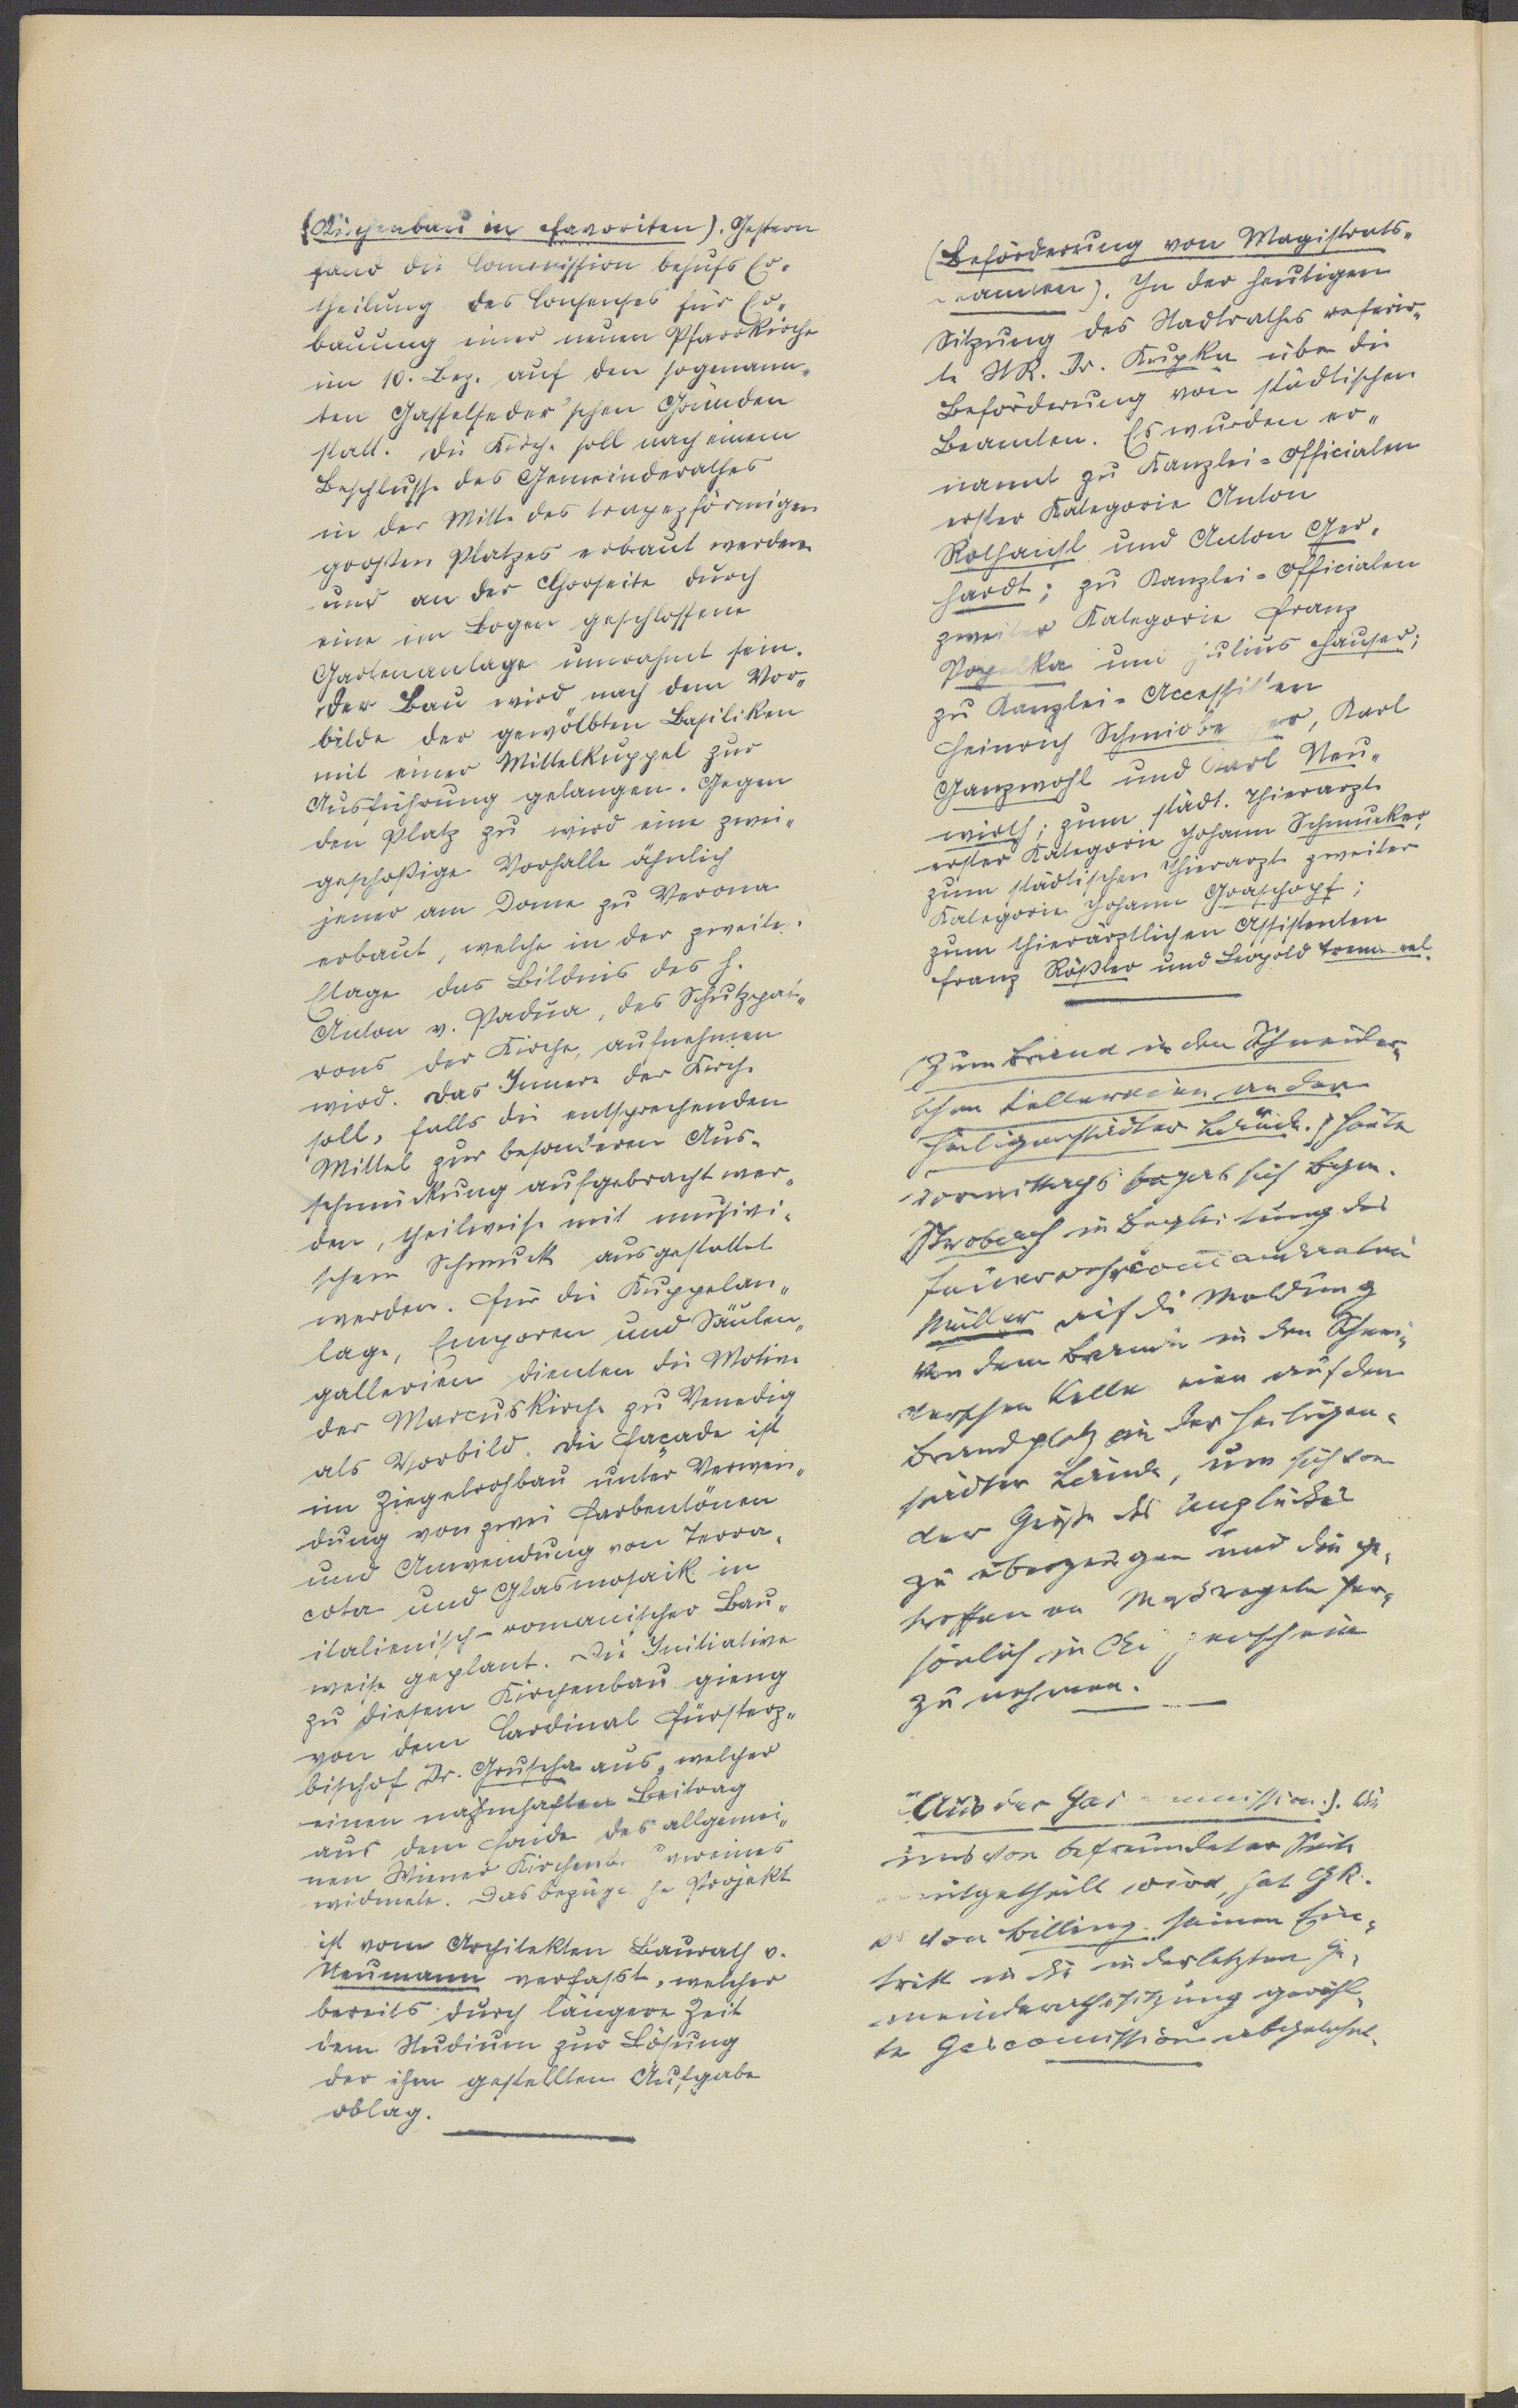 (Kirchenbau in Favoriten). Gestern
fand die Commission behufs Er-
theilung des Consenses für Er-
bauung einer neuen Pfarrkirche
im 10. Bez. auf den sogenann-
ten Gasselseder'schen Gründen
statt. Die Kirche soll nach einem
Beschlusse des Gemeinderathes
in der Mitte des trapezförmigen
großen Platzes erbaut werden
und an der Chorseite durch
eine im Bogen geschlossene
Gartenanlage umrahmt sein.
Der Bau wird nach dem Vor-
bilde der gewölbten Basiliken
mit einer Mittelkuppel zur
Ausführung gelangen. Gegen
den Platz zu wird eine zwei-
geschoßige Vorhalle ähnlich
jener am Dome zu Verona
erbaut, welche in der zweiten
Etage das Bildnis des h.
Anton v. Padua, des Schutzpat-
rons der Kirche, aufnehmen
wird. Das Innere der Kirche
soll, falls die entsprechenden
Mittel zur besonderen Aus-
schmückung aufgebracht wer-
den, theilweise mit musivi-
schem Schmuck ausgestattet
werden. Für die Kuppelan-
lage, Emporen und Säulen-
gallerien dienten die Motive
der Marcuskirche zu Venedig
als Vorbild. Die Façade ist
im Ziegelrohbau unter Verwen-
dung von zwei Farbentönen
und Anwendung von Terra-
cota und Glasmosaik in
italienisch-romanischer Bau-
weise geplant. Die Initiative
zu diesem Kirchenbau gieng
von dem Cardinal Fürsterz-
bischof Dr. Gruscha aus, welcher
einen nahmhaften Beitrag
aus dem Fonde des allgemei-
nen Wiener Kirchenbauvereines
widmete. Das bezügliche Projekt
ist vom Architekten Baurath v.
Neumann verfasst, welcher
bereits durch längere Zeit
dem Studium zur Lösung
der ihm gestellten Aufgabe
oblag.
(Beförderung von Magistrats-
beamten). In der heutigen
Sitzung des Stadtrathes referir-
te StR. Dr. Krupka über die
Beförderung von städtischen
Beamten. Es wurden er-
nannt zu Kanzlei=Officialen
erster Kategorie Anton
Rothansl und Anton Ger-
hardt; zu Kanzlei=Officialen
zweiter Kategorie Franz
und Julius Hauser;
zu Kanzlei=Accessisten
Heinrich Karl
Ganzwohl und Karl Neu-
wirth; zum städt. Thierarzte
erster Kategorie Johann Schmucker,
zum städtischen Thierarzte zweiter
Kategorie Johann Graschopf;
zum thierärztlichen Assistenten
Franz Rößler und Leopold
(Zum Brand in den Schneider-
schen Kellereien an der
Heiligenstädter Lände.) Heute
vormittags begab sich Bgm.
Strobach in Begleitung des
Feuerwehrcommandanten
Müller auf die Meldung
von dem Brande in den Schnei-
derschen Kellereien auf den
Brandplatz an der Heiligen-
städter Lände, um sich von
der Größe des Unglückes
zu überzeugen und die ge-
troffenen Maßregeln per-
sönlich in Augenschein
zu nehmen.
(Aus der Gascommission). Wie
uns von befreundeter Seite
mitgetheilt wird, hat GR.
von Billing seinen Ein-
tritt in die in der letzten Ge-
meinderathssitzung gewähl-
te Gascommission abgelehnt.